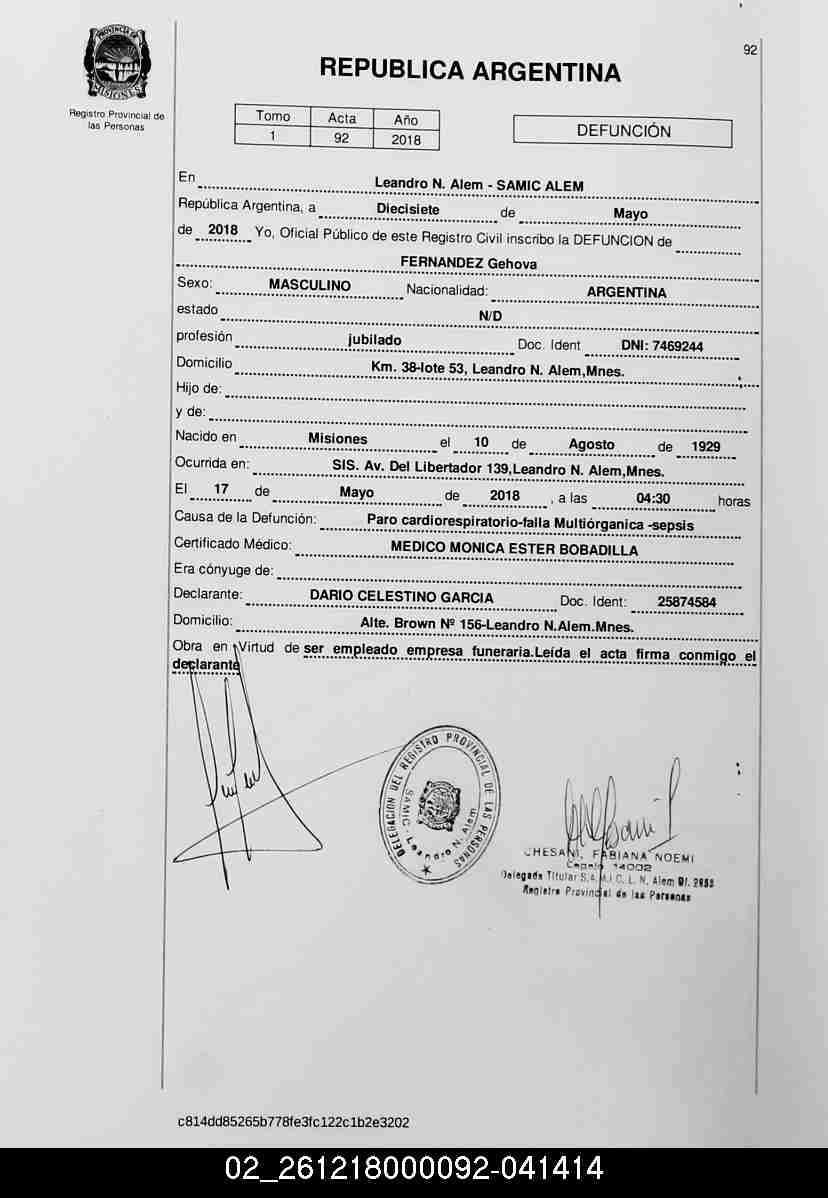 92
PROVINCIA DE
MISIONES
Registro Provincial de
las Personas
REPUBLICA ARGENTINA
Tomo Acta Año
1 92 2018
DEFUNCIÓN
En Leandro N. Alem - SAMIC ALEM
República Argentina, a Diecisiete de Mayo
de 2018 Yo, Oficial Público de este Registro Civil inscribo la DEFUNCION de
FERNANDEZ Gehova
Sexo: MASCULINO Nacionalidad: ARGENTINA
estado N/D
profesión jubilado Doc. Ident DNI: 7469244
Domicilio Km. 38-lote 53, Leandro N. Alem,Mnes.
Hijo de:
y de:
Nacido en Misiones el 10 de Agosto de 1929
Ocurrida en: SIS. Av. Del Libertador 139,Leandro N. Alem,Mnes.
El 17 de Mayo de 2018 , a las 04:30 horas
Causa de la Defunción: Paro cardiorespiratorio-falla Multiórganica -sepsis
Certificado Médico: MEDICO MONICA ESTER BOBADILLA
Era cónyuge de:
Declarante: DARIO CELESTINO GARCIA Doc. Ident: 25874584
Domicilio: Alte. Brown Nº 156-Leandro N.Alem.Mnes.
Obra en Virtud de ser empleado empresa funeraria.Leída el acta firma conmigo el
declarante
DELEGACION DEL REGISTRO PROVINCIAL DE LAS PERSONAS
SAMIC - Leandro N. Alem
CHESANI, FABIANA NOEMI
14002
Delegada Titular S.A.M.I.C. L. N. Alem
Registro Provincial de las Personas
c814dd85265b778fe3fc122c1b2e3202
02_261218000092-041414